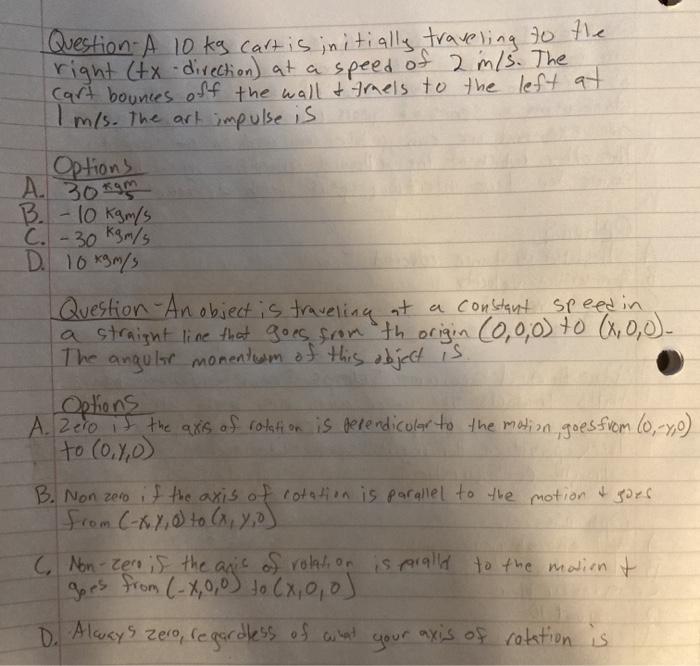 Question-A 10 kg cart is initially traveling to the
right (+x-direction) at a speed of 2 m/s. The
cart bounces off the wall & traels to the left at
1 m/s. The art impulse is
Options
A. 30 kgm/s
B. -10 Kgm/s
C. -30 Kgm/s
D. 10 kgm/s
Question-An object is traveling at a constant speed in
a straight line that goes from th origin (0,0,0) to (x,0,0)-
The angular momentum of this object is
Options
A. Zero if the axis of rotation is perendicular to the motion, goes from (0,-y,0)
to (0,y,0)
B. Non zero if the axis of rotation is parallel to the motion & goes
from (-x,y,0) to (x,y,0)
C. Non-zero if the axis of rotation is paralld to the motion &
goes from (-x,0,0) to (x,0,0)
D. Always zero, regardless of what your axis of rotation is